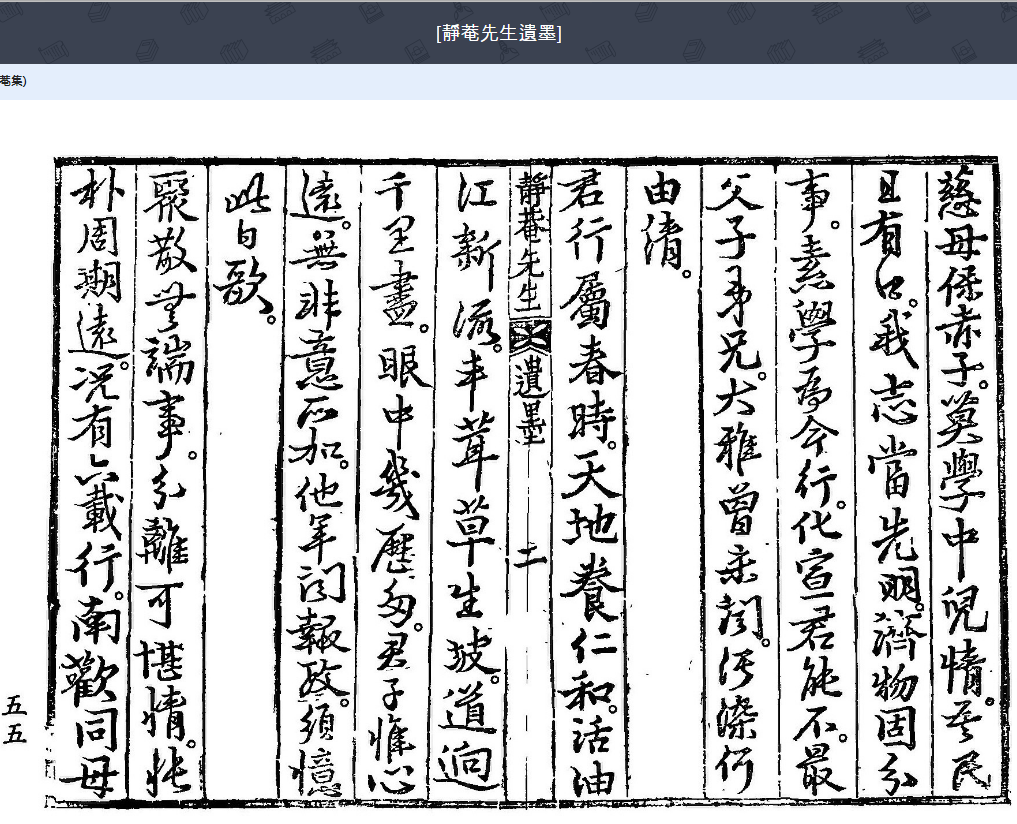 [靜菴先生遺墨]
菴集)
慈母保赤子。莫學中兒情。若民
且有口。我志當先明。濟物固分
事。素學爲今行。化宣君能不。最
父子弟兄。大雅曾未聞。污染何
由淸。
君行屬春時。天地養仁和。活油
靜菴先生 遺墨 二
江新流。丰茸草生坡。道逈
千里盡。眼中幾歷多。君子惟心
遠。無非意所加。他年聞報政。須憶
此日歌。
聚散無端事。分離可堪情。悵
朴周潮遠。况有六載行。南歡同母
五五